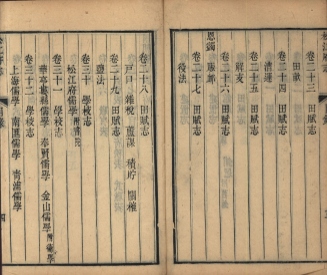 卷二十三 田賦志
田畝
卷二十四 田賦志
漕運
卷二十五 田賦志
解支
卷二十六 田賦志
恩蠲 賑䘏
卷二十七 田賦志
役法
卷二十八 田賦志
戶口 雜稅 蘆課 積貯 關榷
卷二十九 田賦志
鹽法
卷三十 學校志
松江府儒學
卷三十一 學校志
華亭縣儒學 奉賢儒學 金山儒學
卷三十二 學校志
上海儒學 南匯儒學 青浦儒學